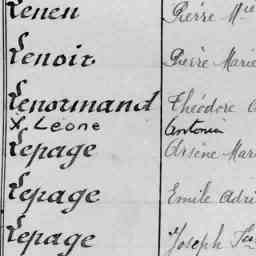 Leneu Pierre Mie
Lenoir Pierre Marie
Lenormand Théodore
X Leone Antonin
Lepage Arsène Mari
Lepage Emile Adri
Lepage Joseph